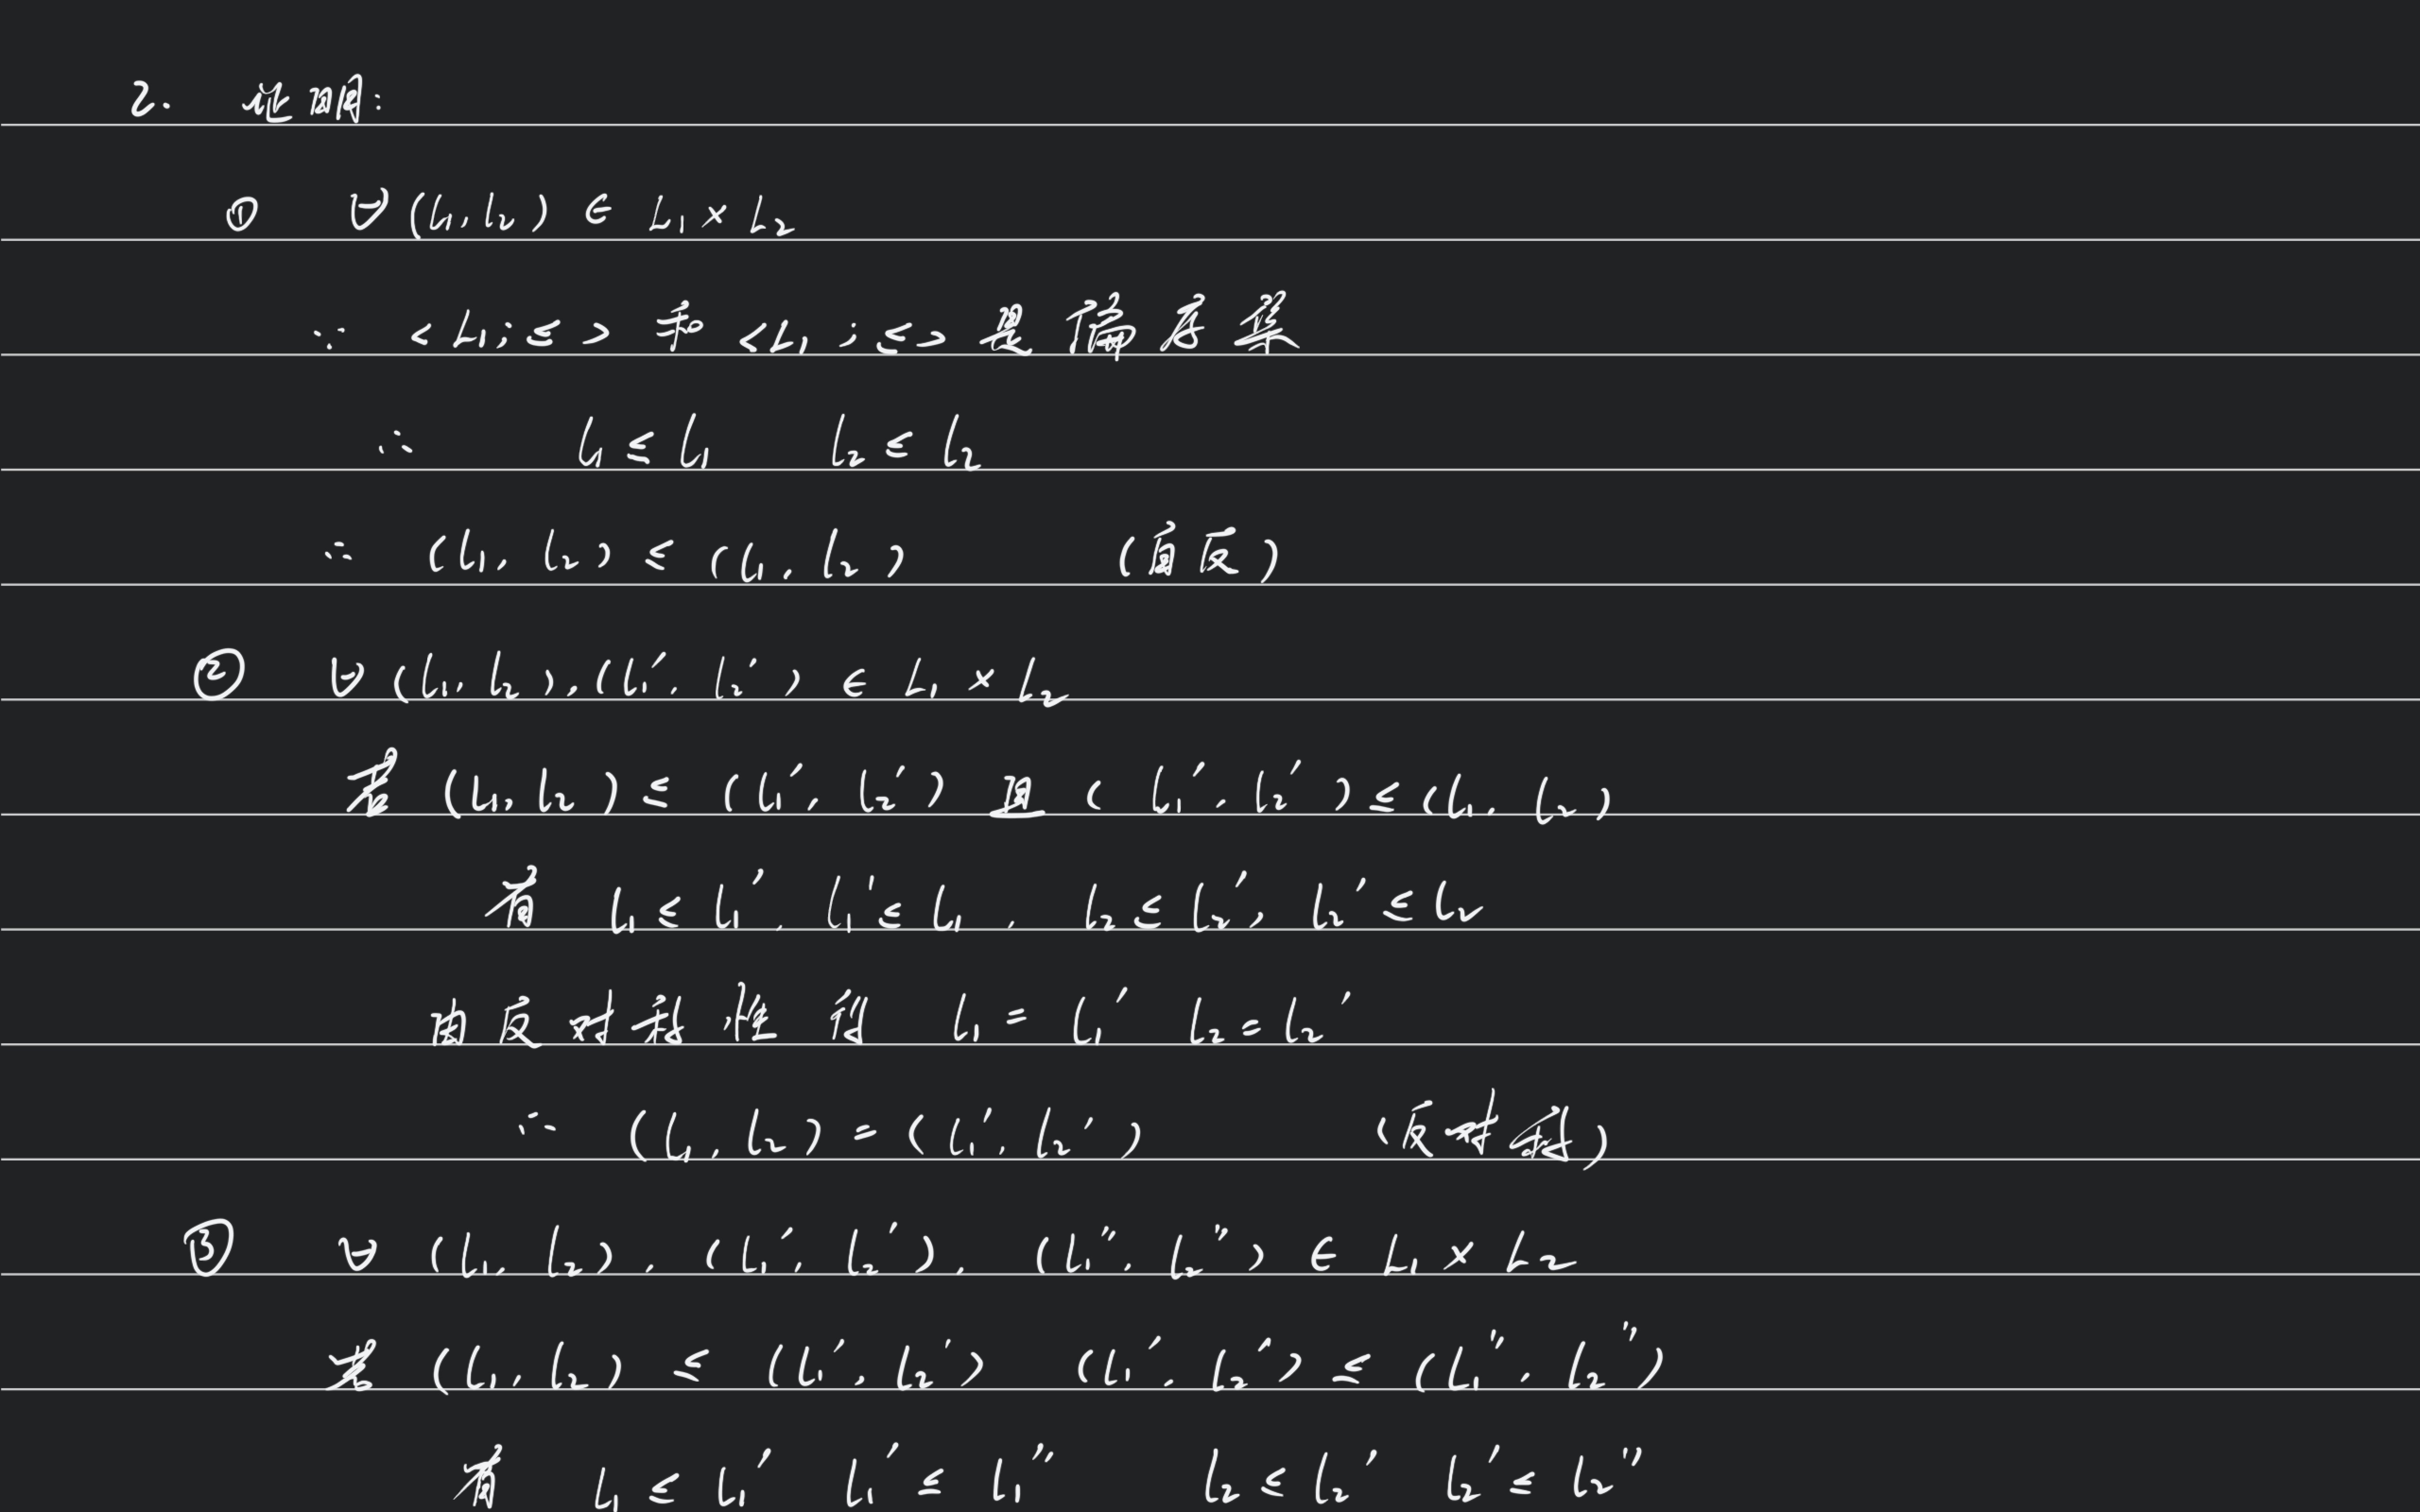 2. 证明:
① ∀(l₁, l₂) ∈ L₁ × L₂
∵ <L₁; ≤> 和 <L₁; ≤> 是偏序集
∴ l₁ ≤ l₁ l₂ ≤ l₂
∴ (l₁, l₂) ≤ (l₁, l₂) (自反)
② ∀(l₁, l₂), (l₁′, l₂′) ∈ L₁ × L₂
若 (l₁, l₂) ≤ (l₁′, l₂′) 且 (l₁′, l₂′) ≤ (l₁, l₂)
有 l₁ ≤ l₁′, l₁′ ≤ l₁, l₂ ≤ l₂′, l₂′ ≤ l₂
由反对称性得 l₁ = l₁′ l₂ = l₂′
∴ (l₁, l₂) = (l₁′, l₂′) (反对称)
③ ∀ (l₁, l₂), (l₁′, l₂′), (l₁″, l₂″) ∈ L₁ × L₂
若 (l₁, l₂) ≤ (l₁′, l₂′) (l₁′, l₂′) ≤ (l₁″, l₂″)
有 l₁ ≤ l₁′ l₁′ ≤ l₁″ l₂ ≤ l₂′ l₂′ ≤ l₂″